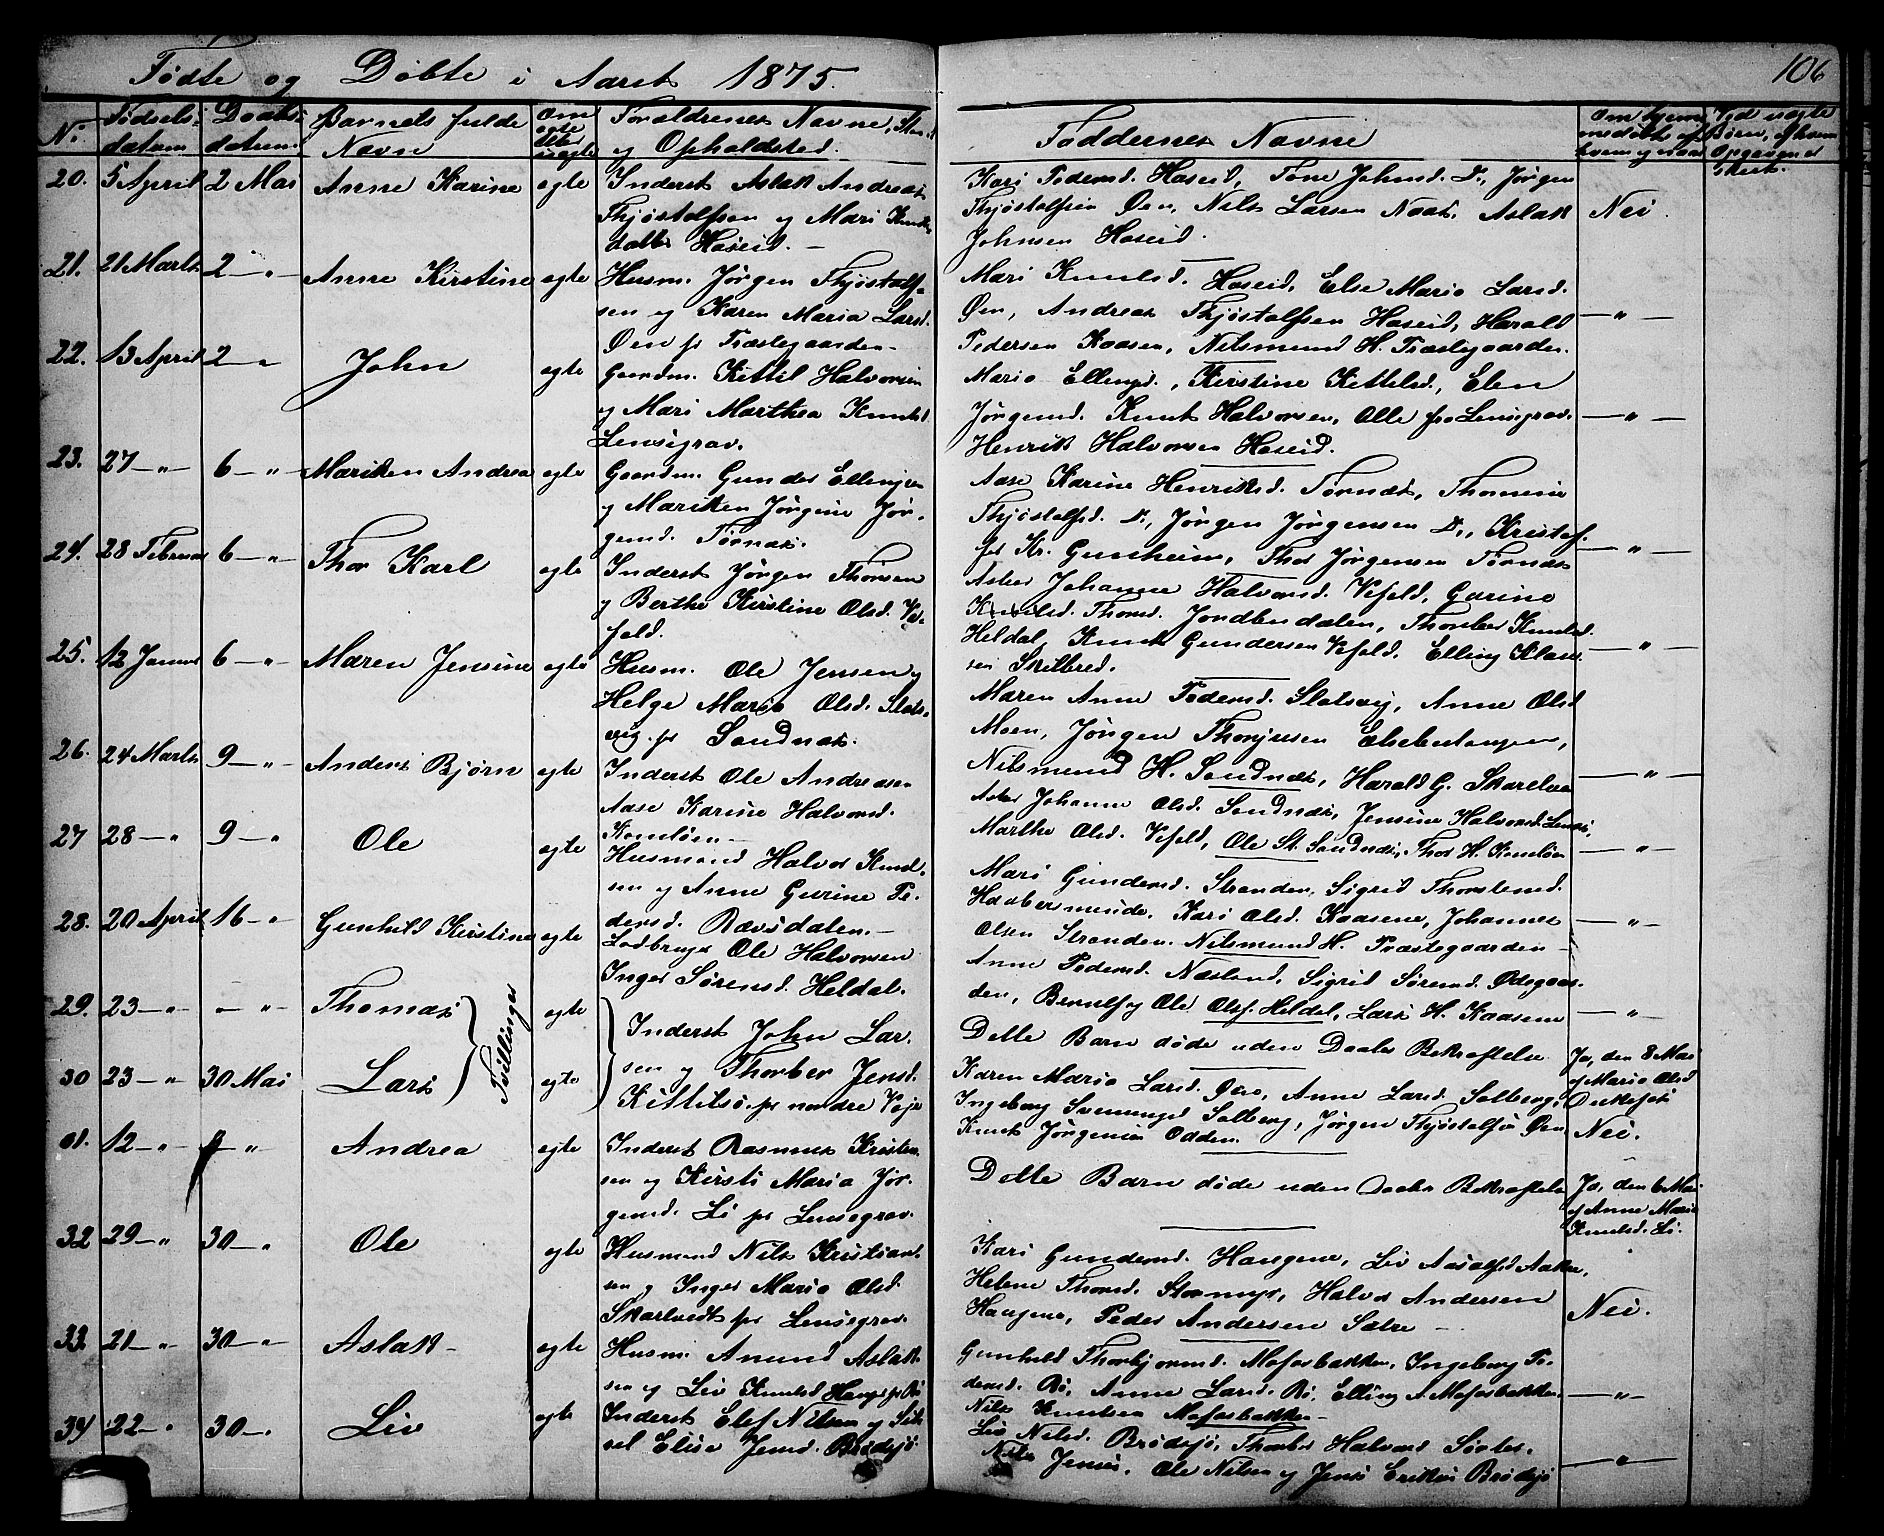 Fødte og Døbte i Aaret 1875.
106
No
Fødsels-
datum
Daabs-
datum
Barnets fulde
Navn
Om
egte
eller
uegte
Forældrenes Navne, Stand
og Opholdsted.
Faddernes Navne
Om hjemme
Ved uægte
20. 5 April 2 Mai Anne Karine egte
Inderst Aslak Andreas
Thjøstolfsen og Mari Knuds
datter Haseid. —
Kari Pedersd. Haseid, Tone Johnsd. D., Jørgen
Thjøstolfsen Øen, Nils Larsen Naas. Aslak
Johnsen Haseid.
Nei.
21. 21 Marts 2 — „ — Anne Kirstine egte
Husm. Jørgen Thjøstolf-
sen og Karen Maria Larsd.
Øen pr Præstegaarden —
Mari Knutsd. Haseid, Else Maria Larsd.
Øen, Andreas Thjøstolfsen Haseid, Harald
Pedersen Kaasen, Nilsmund H. Præstegaarden.
— „ —
22. 13 April 2 — „ John egte
Gaardm. Kittil Halvorsen
og Mari Marthea Knutsd.
Lensigrav.
Maria Ellingsd., Kirstine Kittelsd., Elen
Jørgensd. Knut Halvorsen, Alle fra Lensegrav.
Henrik Halvorsen Haseid.
— „ —
23. 27 — „ — 6 — „ Mariken Andrea egte
Gaardm. Gunder Ellingsen
og Mariken Jørgine Jør-
gensd. Tørnæs.
Aase Karine Henriksd. Tørnæs, Thomine
Thjøstolfsd. D., Jørgen Jørgensen D., Kristof-
fer Kr. Gunheim, Thor Jørgensen Tørnæs
— „ —
24. 28 Februar 6 — „ — Thor Karl egte
Inderst Jørgen Thorsen
og Berthe Kirstine Olsd. Ve-
fald.
Asber Johanne Halvorsd. Vefald, Gurine
Thorsd. Jondbudalen, Thorber Knutsd.
Heldal, Knut Gundersen Vefald, Elling Klaus-
sen Skilbred.
— „ —
25. 12 Januar 6 — „ — Maren Jensine egte
Husm. Ole Jensen og
Helge Maria Olsd. Slots-
vig pr Sandnæs.
Maren Anne Pedersd. Slotsvig, Anne Olsd
Moen, Jørgen Thorjusen
Nilsmund H. Sandnæs, Harald G.
— „ —
26. 24 Marts 9 — „ — Anders Bjørn egte
Inderst Ole Andreasen
Aase Karine Halvorsd.
Asber Johanne Olsd. Sandnæs, Jensine Halvorsd.
Marthe Olsd. Vefald, Ole St. Sandnæs, Thor H.
— „ —
27 28 — „ 9 — „ Ole egte
Husmand Halvor Knud-
sen og Anne Gurine Pe-
dersd. Rævsdalen. —
Mari Gundersd. Stranden, Sigrid Thorstensd.
Kari Olsd. Kaasene, Johannes
Olsen Stranden. Nilsmund H. Præstegaarden —
— „ —
28. 20 April 16 — „ Gunhild Kirstine egte
Ole Halvorsen
Inger Sørensd. Heldal.
Anne Pedersd. Næsland, Sigrid Sørensd. Ødegaar-
den, Ole Olsf. Heldal, Lars H. Kaasene
— „ —
29. 23 — „ — „ — Thomas egte
30 23 — „ 30 Mai Lars egte
Tvillinger
Inderst John Lar-
sen og Thorber Jensd.
Kittilsø pr nordre
Dette Barn døde uden Daabs Bekræftelse
Ja, den 8 Mai
af Maria Olsd
Karen Maria Larsd. Øen, Anne Larsd. Solberg,
Ingeborg Svenungsd Solberg, Jørgen Thjøstolfsen Øen
Knut Jørgensen Odden.
Nei.
31. 12 — „ „ Andrea egte
Inderst Rasmus Kristen-
sen og Kirsti Maria Jør-
gensd. Li pr Lensegrav.
Dette Barn døde uden Daabs Bekræftelse
Ja, den 6 Mai
af Anne Maria
Knutsd. Li.
32 29 — „ 30 — „ Ole egte
Husmand Nils Kristian-
sen og Inger Maria Olsd.
Skarlvedt pr Lensegrav.
Kari Gundersd. Haugene, Liv Aasolfsd Aakre,
Helene Thorsd. Stormyr, Halvor Andersen
Haugene, Peder Andersen Sætre —
Nei.
33. 21 — „ 30 — „ Aslak — egte
Husm. Amund Aslak-
sen og Liv Knutsd. Hauge pr Bø
Gunhild Thorbjørnsd. Mofosbakken, Ingeborg Pe-
dersd. Bø, Anne Larsd. Bø, Elling A Mofosbakken.
Nils Knutsen Mofosbakken —
— „ —
34 22 — „ 30 — „ Liv egte
Inderst Elef Nilsen og Sis-
sel Elise Jensd. Brødsjø
Liv Nilsd. Brødsjø, Thorber Halvorsd
Nils Jensen, Ole Nilsen og Jens Eriksen Brødsjø
— „ —